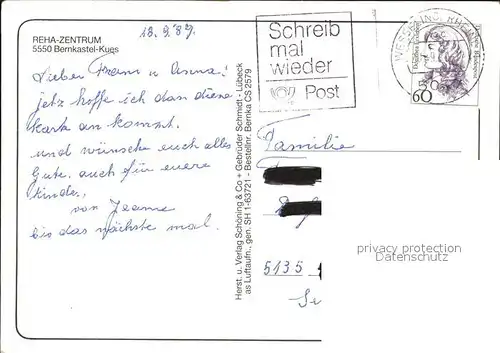 18.9.89.
REHA-ZENTRUM
5550 Bernkastel-Kues
Lieber Franz u Anna!
jetz hoffe ich dan diene
Karte an kommt.
und wünsche euch alles
Gute. auch für euere
kinder.
von Jeanne
bis das nächste mal.
Herst. u. Verlag Schöning & Co + Gebrüder Schmidt - Lübeck
as Luftaufn., gen. SH 1-63721 - Bestellnr. Bernka CS 2579
Schreib
mal
wieder
Post
WESSELING, RHEINL
60
Familie
5135
Se
privacy protection
Datenschutz